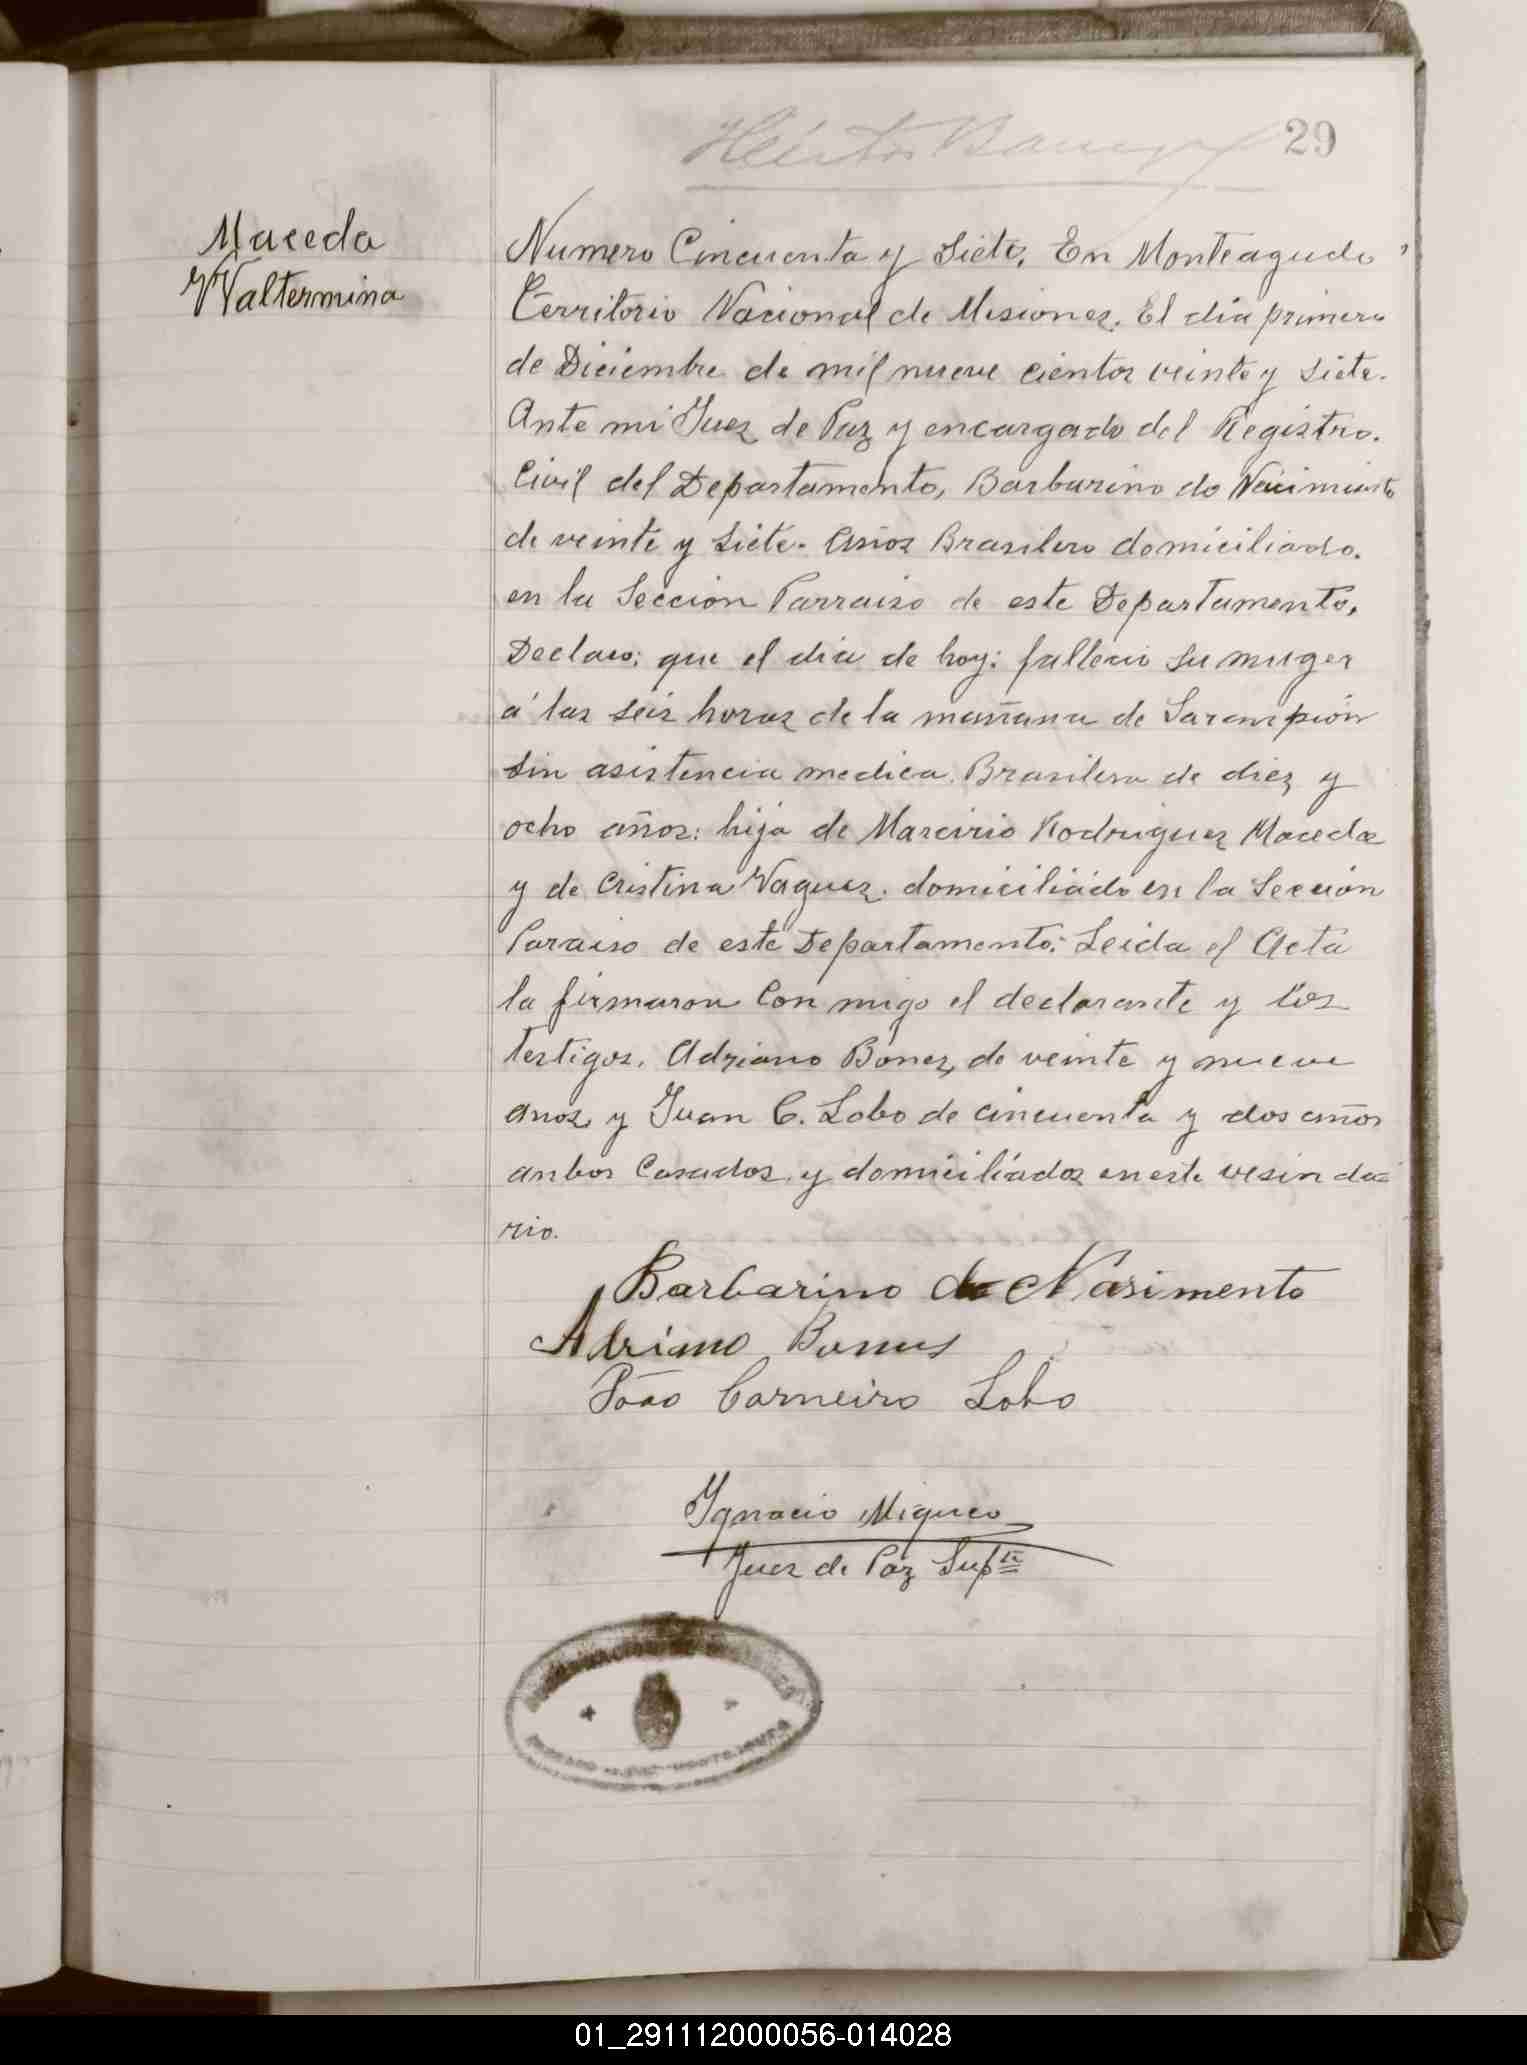 29
Maceda
Waltermina
Numero Cincuenta y Siete, En Monteagudo
Territorio Nacional de Misiones. El dia primero
de Diciembre de mil nueve cientos veinte y siete.
Ante mi Juez de Paz y encargado del Registro.
Civil del Departamento, Barbarino do Nacimiento
de veinte y siete. Años Brasilero domiciliado.
en la Sección Parraiso de este Departamento.
Declaro; que el dia de hoy: fallecio su muger
á las seis horas de la mañana de Sarampión
sin asistencia medica. Brasilera de diez y
ocho años: hija de Marcirio Rodriguez Maceda
y de Cristina Vaguez. domiciliádo en la Sección
Paraiso de este Departamento; Leida el Acta
la firmaron Con migo el declarante y los
testigos. Adriano Bones, de veinte y nueve
anos, y Juan C. Lobo de cincuenta y dos años
anbos Casados, y domiciliados en este vesin da=
rio.
Barbarino de Nasimento
Adriano Bonus
João Carneiro Lobo
Ygnacio Migueo
Juez de Paz Supte
01_291112000056-014028